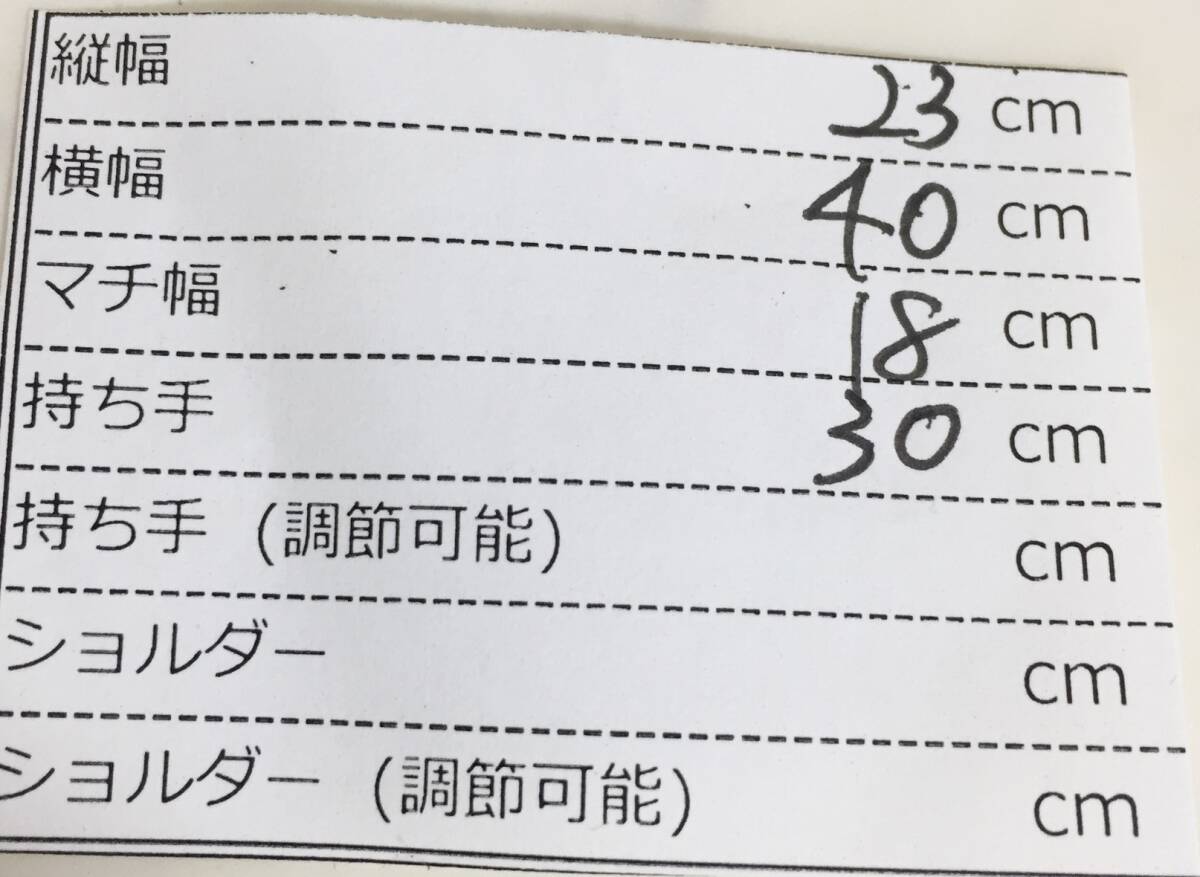 縦幅 23 cm
横幅 40 cm
マチ幅 18 cm
持ち手 30 cm
持ち手 (調節可能) cm
ショルダー cm
ショルダー (調節可能) cm